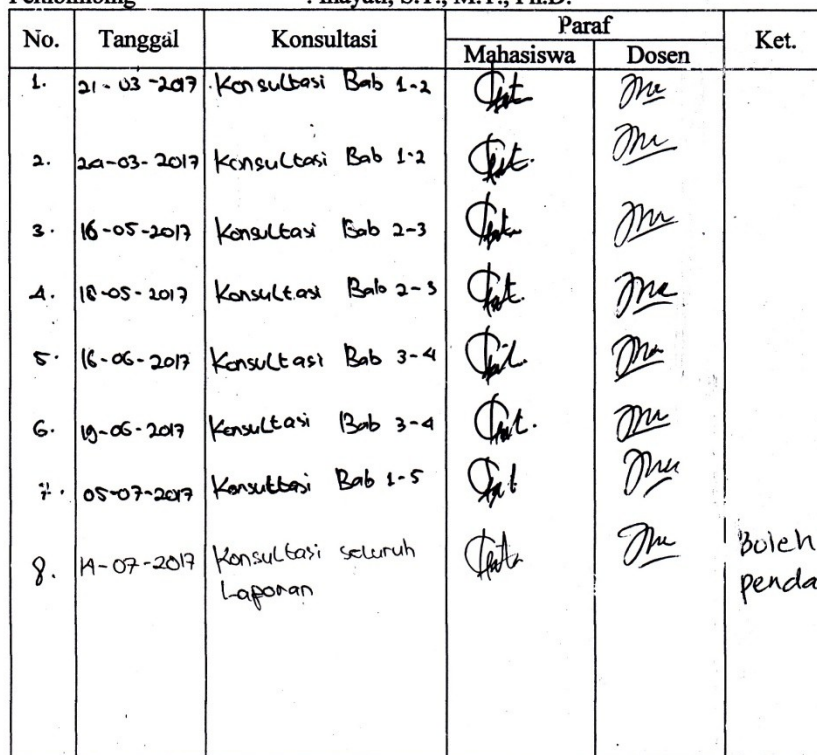 Pembimbing : Inayati, S.T., M.T., Ph.D.
No. Tanggal Konsultasi Paraf Ket.
Mahasiswa Dosen
1. 21-03-2017 Konsultasi Bab 1-2
2. 2a-03-2017 Konsultasi Bab 1-2
3. 16-05-2017 Konsultasi Bab 2-3
4. 18-05-2017 Konsultasi Bab 2-3
5. 16-06-2017 Konsultasi Bab 3-4
6. 19-06-2017 Konsultasi Bab 3-4
7. 05-07-2017 Konsultasi Bab 1-5
8. 14-07-2017 Konsultasi seluruh Boleh
Laporan penda